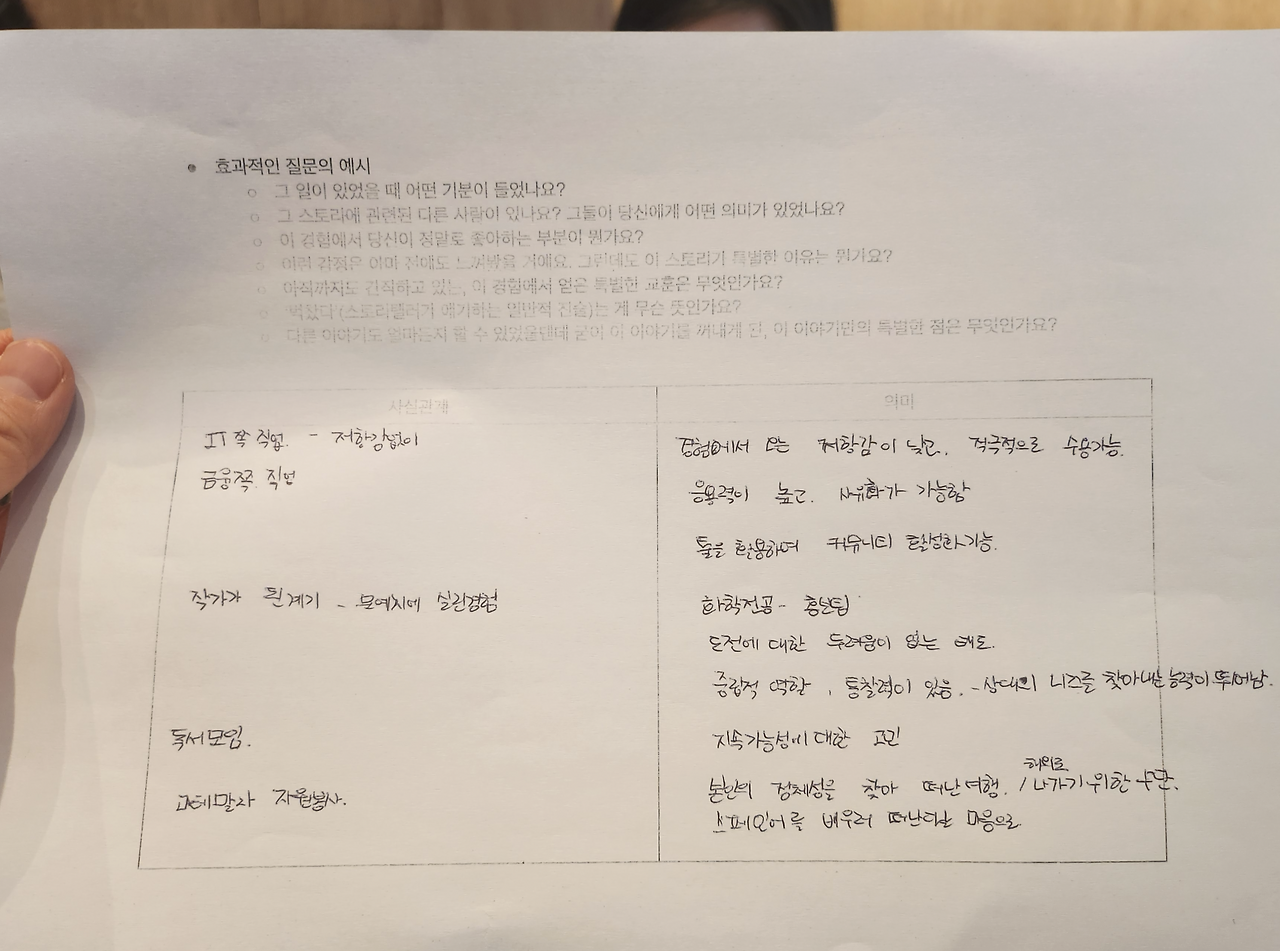 ● 효과적인 질문의 예시
○ 그 일이 있었을 때 어떤 기분이 들었나요?
○ 그 스토리에 관련된 다른 사람이 있나요? 그들이 당신에게 어떤 의미가 있었나요?
○ 이 경험에서 당신이 정말로 좋아하는 부분이 뭔가요?
○ 이런 감정은 아마 전에도 느껴봤을 거예요. 그런데도 이 스토리가 특별한 이유는 뭔가요?
○ 아직까지도 간직하고 있는, 이 경험에서 얻은 특별한 교훈은 무엇인가요?
○ '벅찼다'(스토리텔러가 얘기하는 일반적 진술)는 게 무슨 뜻인가요?
○ 다른 이야기도 얼마든지 할 수 있었을텐데 굳이 이 이야기를 꺼내게 된, 이 이야기만의 특별한 점은 무엇인가요?
사실관계 의미
IT쪽 직업. - 저항감없이
경험에서 오는 저항감이 낮고. 적극적으로 수용가능.
금융쪽. 직업
응용력이 높고. 사유화가 가능함
툴을 활용하여 커뮤니티 활성화가능.
작가가 된 계기 - 문예지에 실린경험
화학전공 - 홍보팀
도전에 대한 두려움이 없는 태도.
중립적 역할, 통찰력이 있음. - 상대의 니즈를 찾아내는 능력이 뛰어남.
독서모임.
지속가능성에 대한 고민
과테말라 자원봉사.
본인의 정체성을 찾아 떠난 여행. / 해외로 나가기 위한 수단.
스페인어를 배우러 떠난다는 마음으로